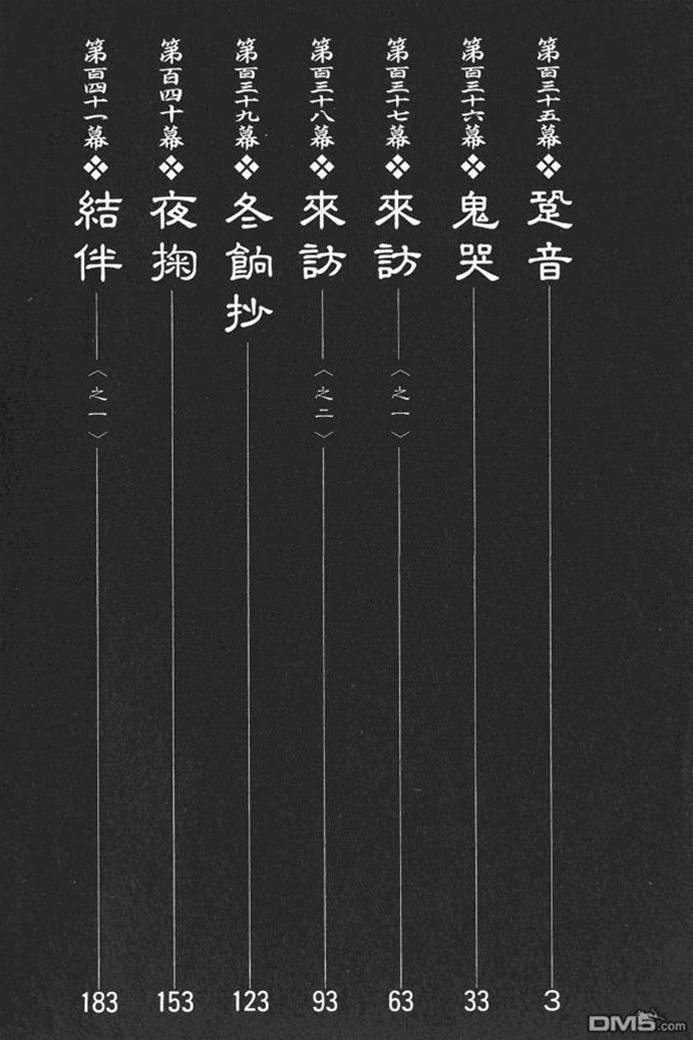 第百三十五幕❖跫音 3
第百三十六幕❖鬼哭 33
第百三十七幕❖來訪〈之一〉 63
第百三十八幕❖來訪〈之二〉 93
第百三十九幕❖冬餉抄 123
第百四十幕❖夜掬 153
第百四十一幕❖結伴〈之一〉 183
DM5.com